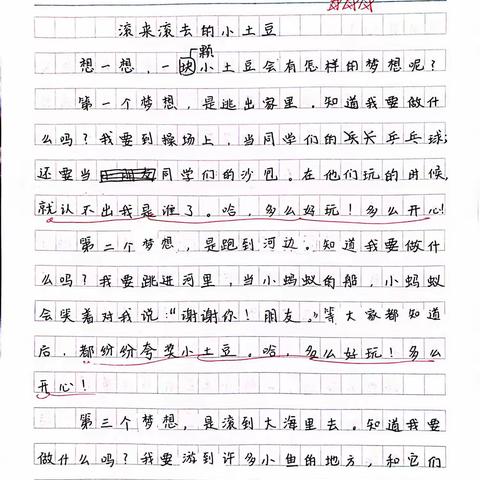 滚来滚去的小土豆
颗
想一想，一块小土豆会有怎样的梦想呢？
第一个梦想，是逃出家里。知道我要做什
么吗？我要到操场上，当同学们的乒乓球，
还要当同学们的沙包。在他们玩的时候，
就认不出我是谁了。哈，多么好玩！多么开心！
第二个梦想，是跑到河边。知道我要做什
么吗？我要跳进河里，当小蚂蚁的船，小蚂蚁
会笑着对我说：“谢谢你！朋友。”等大家都知道
后，都纷纷夸奖小土豆。哈，多么好玩！多么
开心！
第三个梦想，是滚到大海里去。知道我要
做什么吗？我要游到许多小鱼的地方，和它们